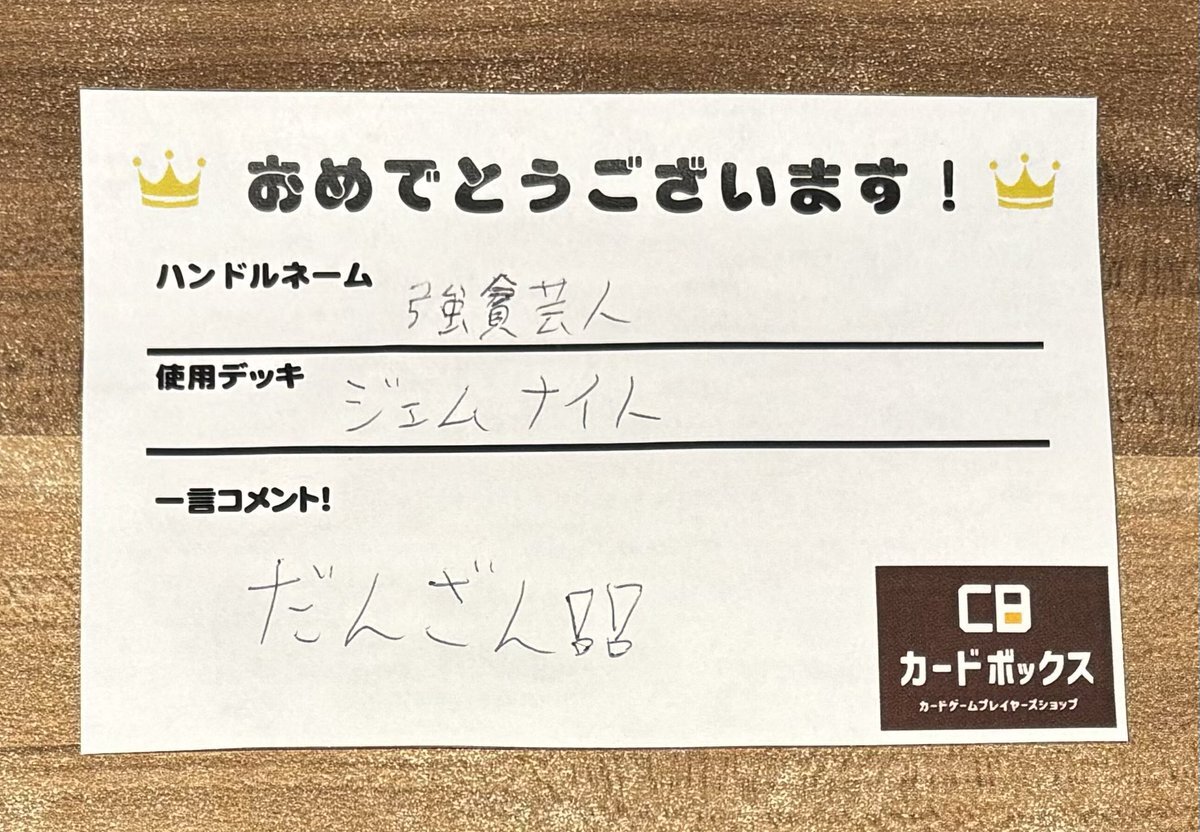 おめでとうございます!
ハンドルネーム 強貧芸人
使用デッキ ジェムナイト
一言コメント!
だんざん!!
CB
カードボックス
カードゲームプレイヤーズショップ